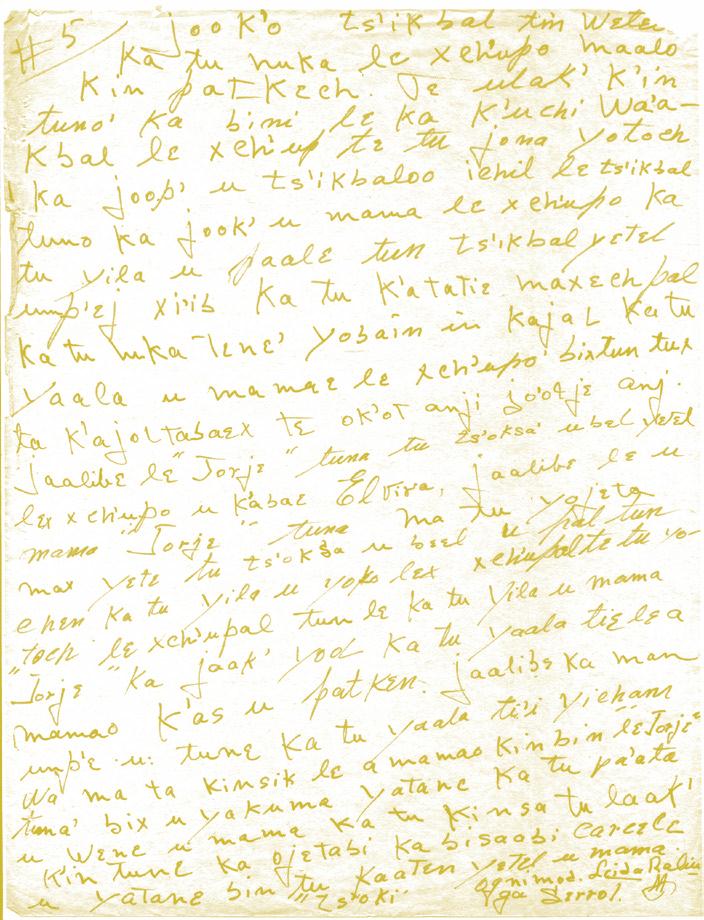 #5 jook'o ts'ikbal tin Wetel
Ka tu nuka le xchupo maalo
Kin patKech. Te ulak' K'in
tuno' Ka bini le Ka K'uchi Wa'a-
Kbal le xch'up te tu jona yotoch
Ka joop' u ts'ikbaloo ichil le ts'ikbal
tuno Ka jook' u mama le xch'upo Ka
tu yila u paale tun ts'ikbal yetel
ump'ej xi'ib Ka tu K'atatie maxech pal
Ka tu nuka lene' yobain in Kajal Ka tu
yaala u mamae le xch'upo bixtun tux
ta K'ajoltabaex te ok'ot anji joolje anj.
jaalibe le "Jorje" tuna tu ts'oksa' u bel yetel
lex xch'upo u K'abae Elvira, jaalibe le u
mama "Jorje" tuna ma tu yojeta
max yete tu ts'oksa u beel u pal tun
chen Ka tu yila u yoko lex xch'upalte tu yo-
"toch le xch'upal tun le Ka tu yila u mama
Jorje" Ka jaak' yol Ka tu yaala tie le a
mamao K'as u patKen. jaalibe Ka man
ump'e u: tune Ka tu yaala ti'i yicham
Wa ma ta Kinsik le a mamao Kin bin le "Jorje"
tuna' bix u yakuma yatane Ka tu pa'ata
u Wene u mama Ka tu Kinsa tu laak'
K'in tune Ka ojetabi Ka bisaabi carcele
u yatane bin tu Kaaten yetel u mama.
"Ts'oki"